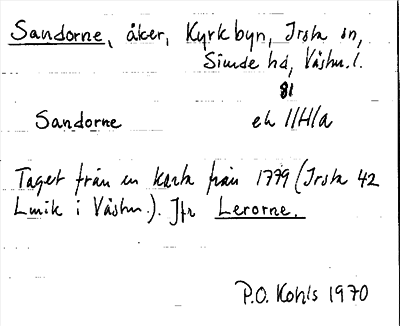 Sandorne, åker, Kyrkbyn, Irsta sn,
Siende hd, Västm. l.
81
Sandorne ek 11/H/a
Taget från en karta från 1779 (Irsta 42
Lmk i Västm.). Jfr Lerorne.
P.O. Kohls 1970